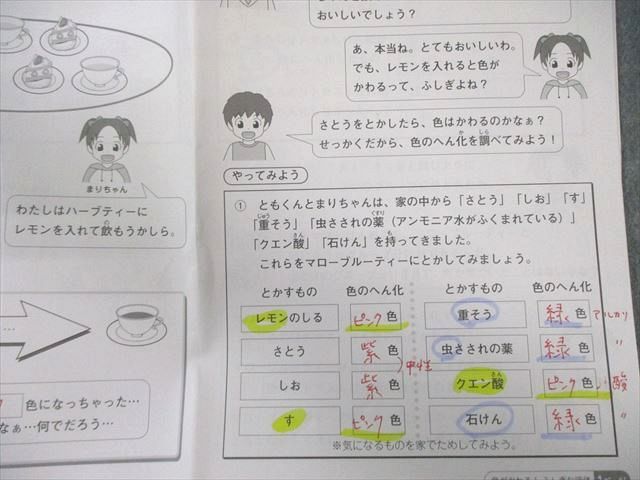 おいしいでしょう？
あ、本当ね。とてもおいしいわ。
でも、レモンを入れると色が
かわるって、ふしぎよね？
さとうをとかしたら、色はかわるのかなぁ？
せっかくだから、色のへん化を調べてみよう！
まりちゃん
わたしはハーブティーに
レモンを入れて飲もうかしら。
…
色になっちゃった…
なぁ…何でだろう…
やってみよう
① ともくんとまりちゃんは、家の中から「さとう」「しお」「す」
「重そう」「虫さされの薬（アンモニア水がふくまれている）」
「クエン酸」「石けん」を持ってきました。
これらをマローブルーティーにとかしてみましょう。
とかすもの 色のへん化 とかすもの 色のへん化
レモンのしる ピンク色 重そう 緑色 アルカリ
さとう 紫色 虫さされの薬 緑色 〃
中性
しお 紫色 クエン酸 ピンク色 酸
す ピンク色 石けん 緑色 〃
※気になるものを家でためしてみよう。